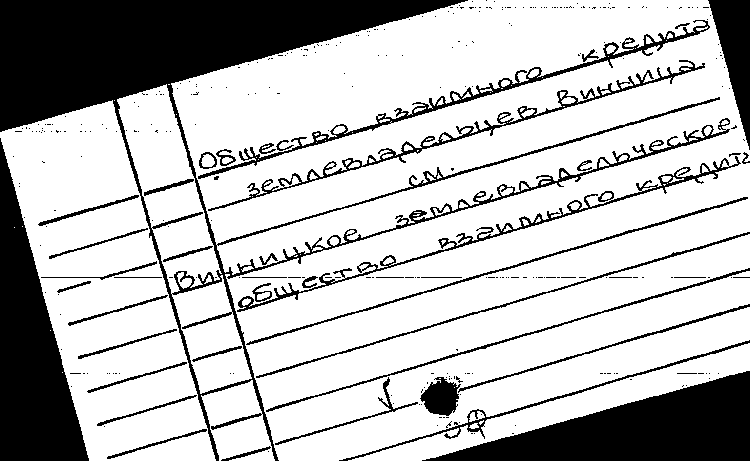 Общество взаимного кредита
землевладельцев. Винница.
см.
Винницкое землевладельческое
общество взаимного кредита